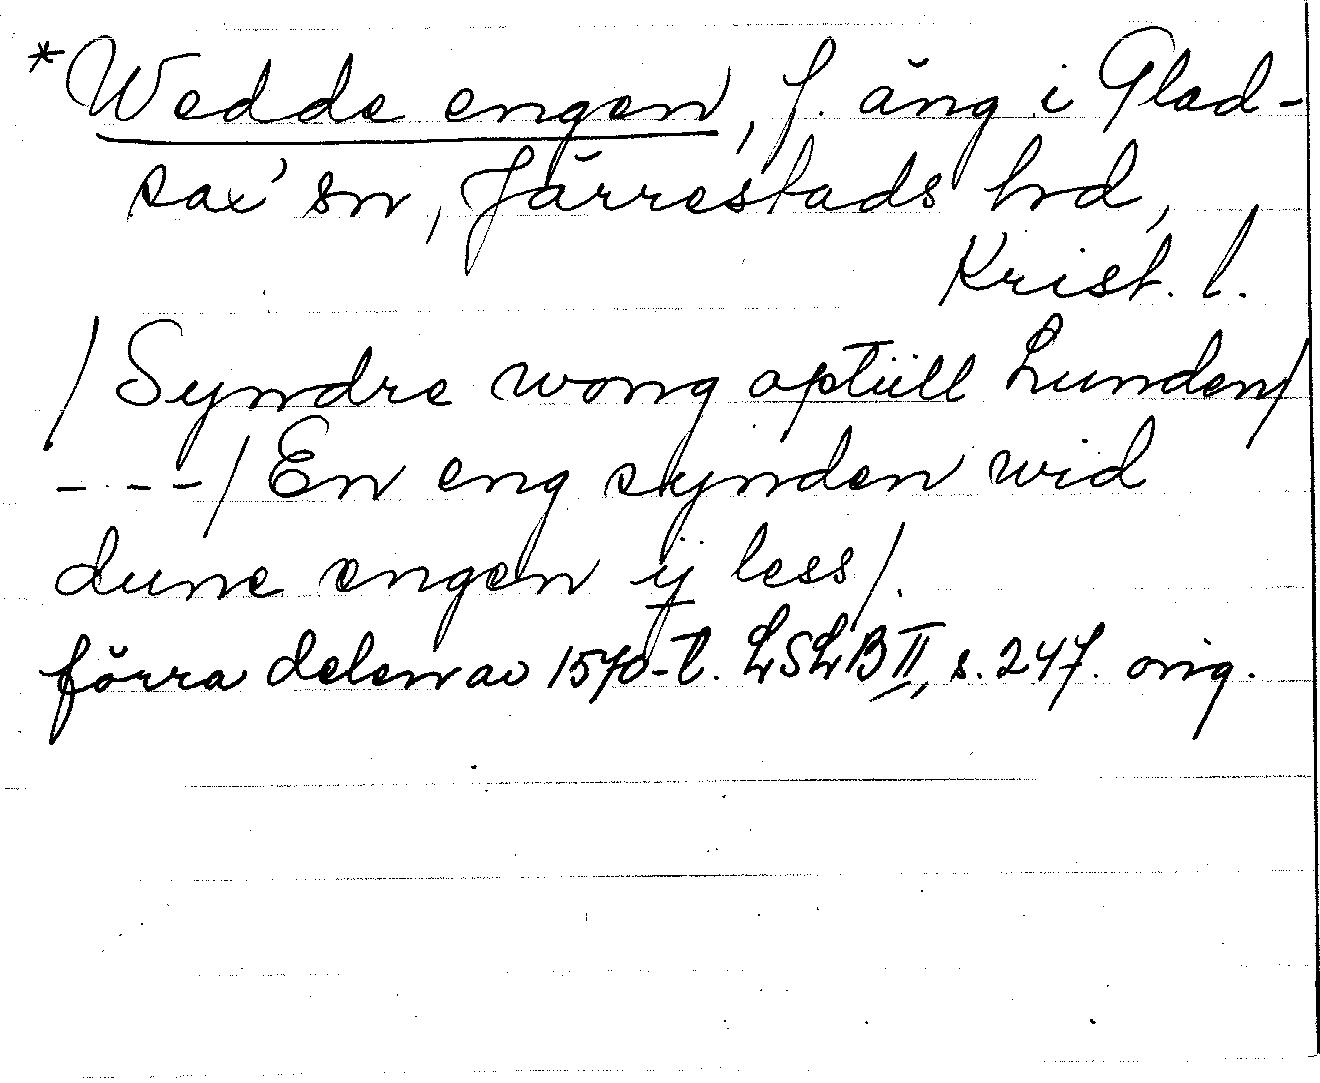 *Wedde engen, f. äng i Glad-
sax' sn, Järrestads hrd,
Krist. l.
/Syndre wong optiill Lunden/
- - - -/ En eng synden wid
dune engen ij less/.
förra delen av 1570-t. LSLB II, s. 247. orig.